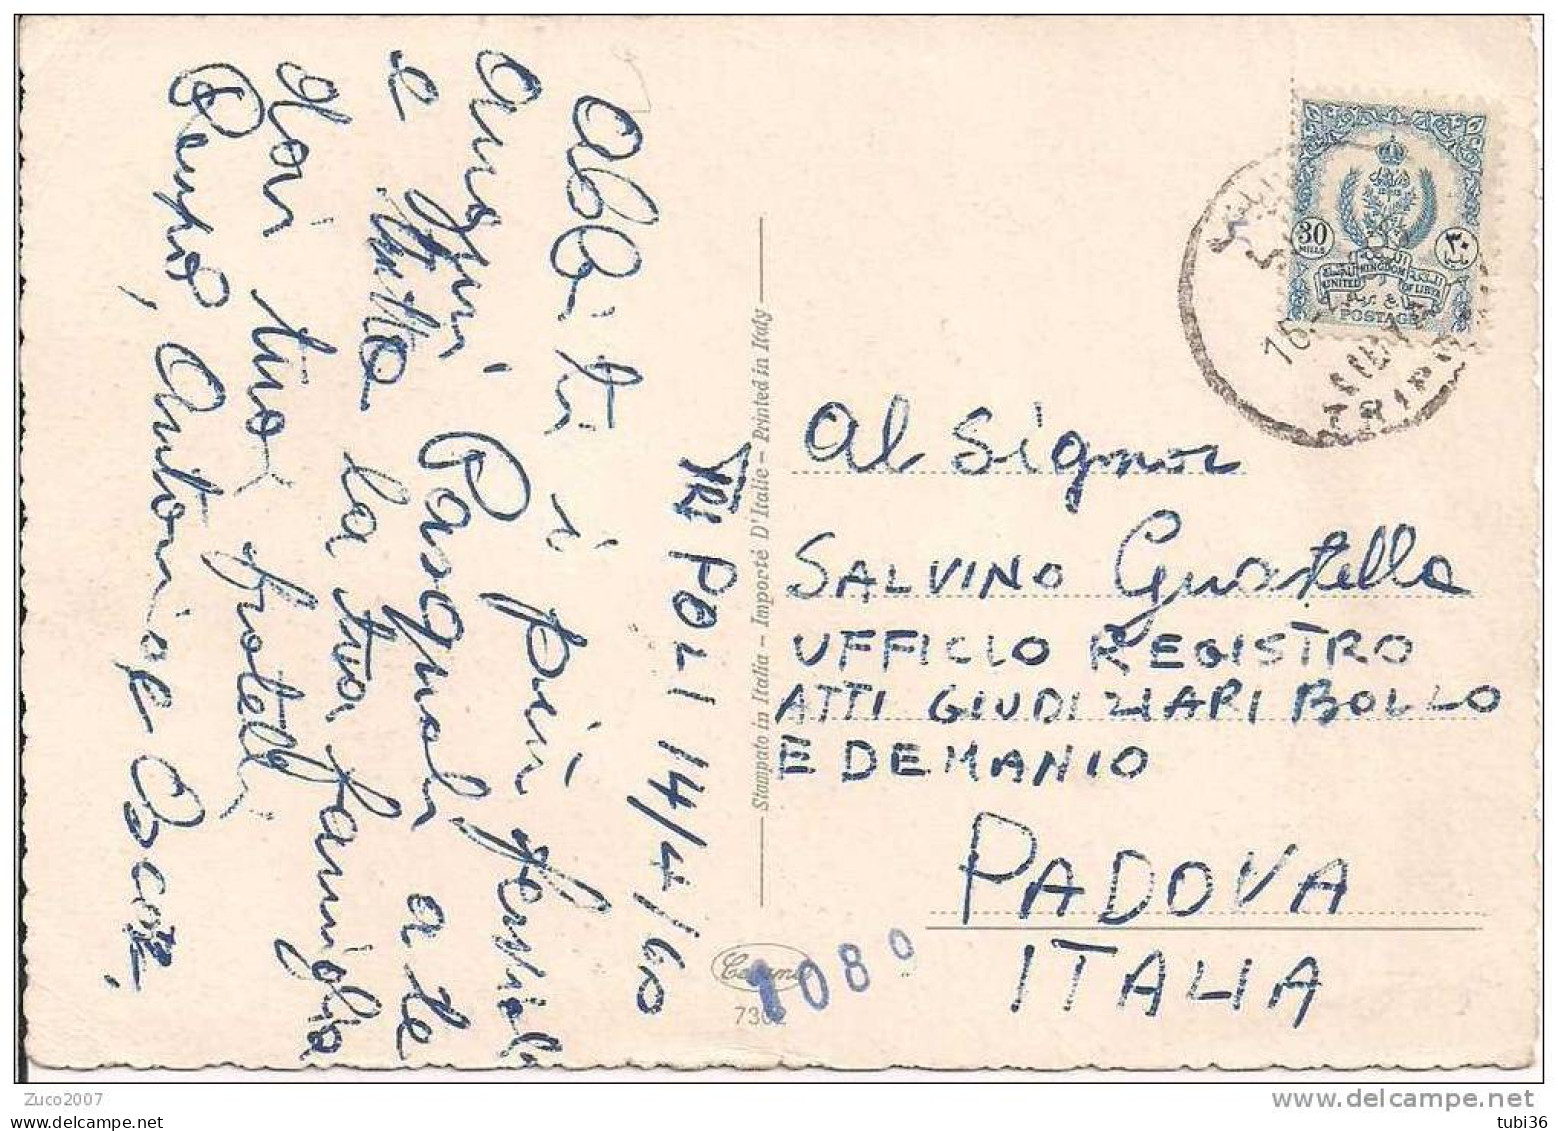 TRIPOLI 14/4/60
Abbiti i più fervidi
auguri Pasquali a te
e tutta la tua famiglia
dai tuoi fratelli
Peppe, Antonio e Oscar,
Stampato in Italia - Importé D'Italie - Printed in Italy
7302
1080
30
MILLS
٣٠
UNITED KINGDOM OF LIBYA
POSTAGE
TRIPO
Al Signor
SALVINO Guastella
UFFICIO REGISTRO
ATTI GIUDIZIARI BOLLO
E DEMANIO
PADOVA
ITALIA
Zuco2007
delcampe.net
tubi36